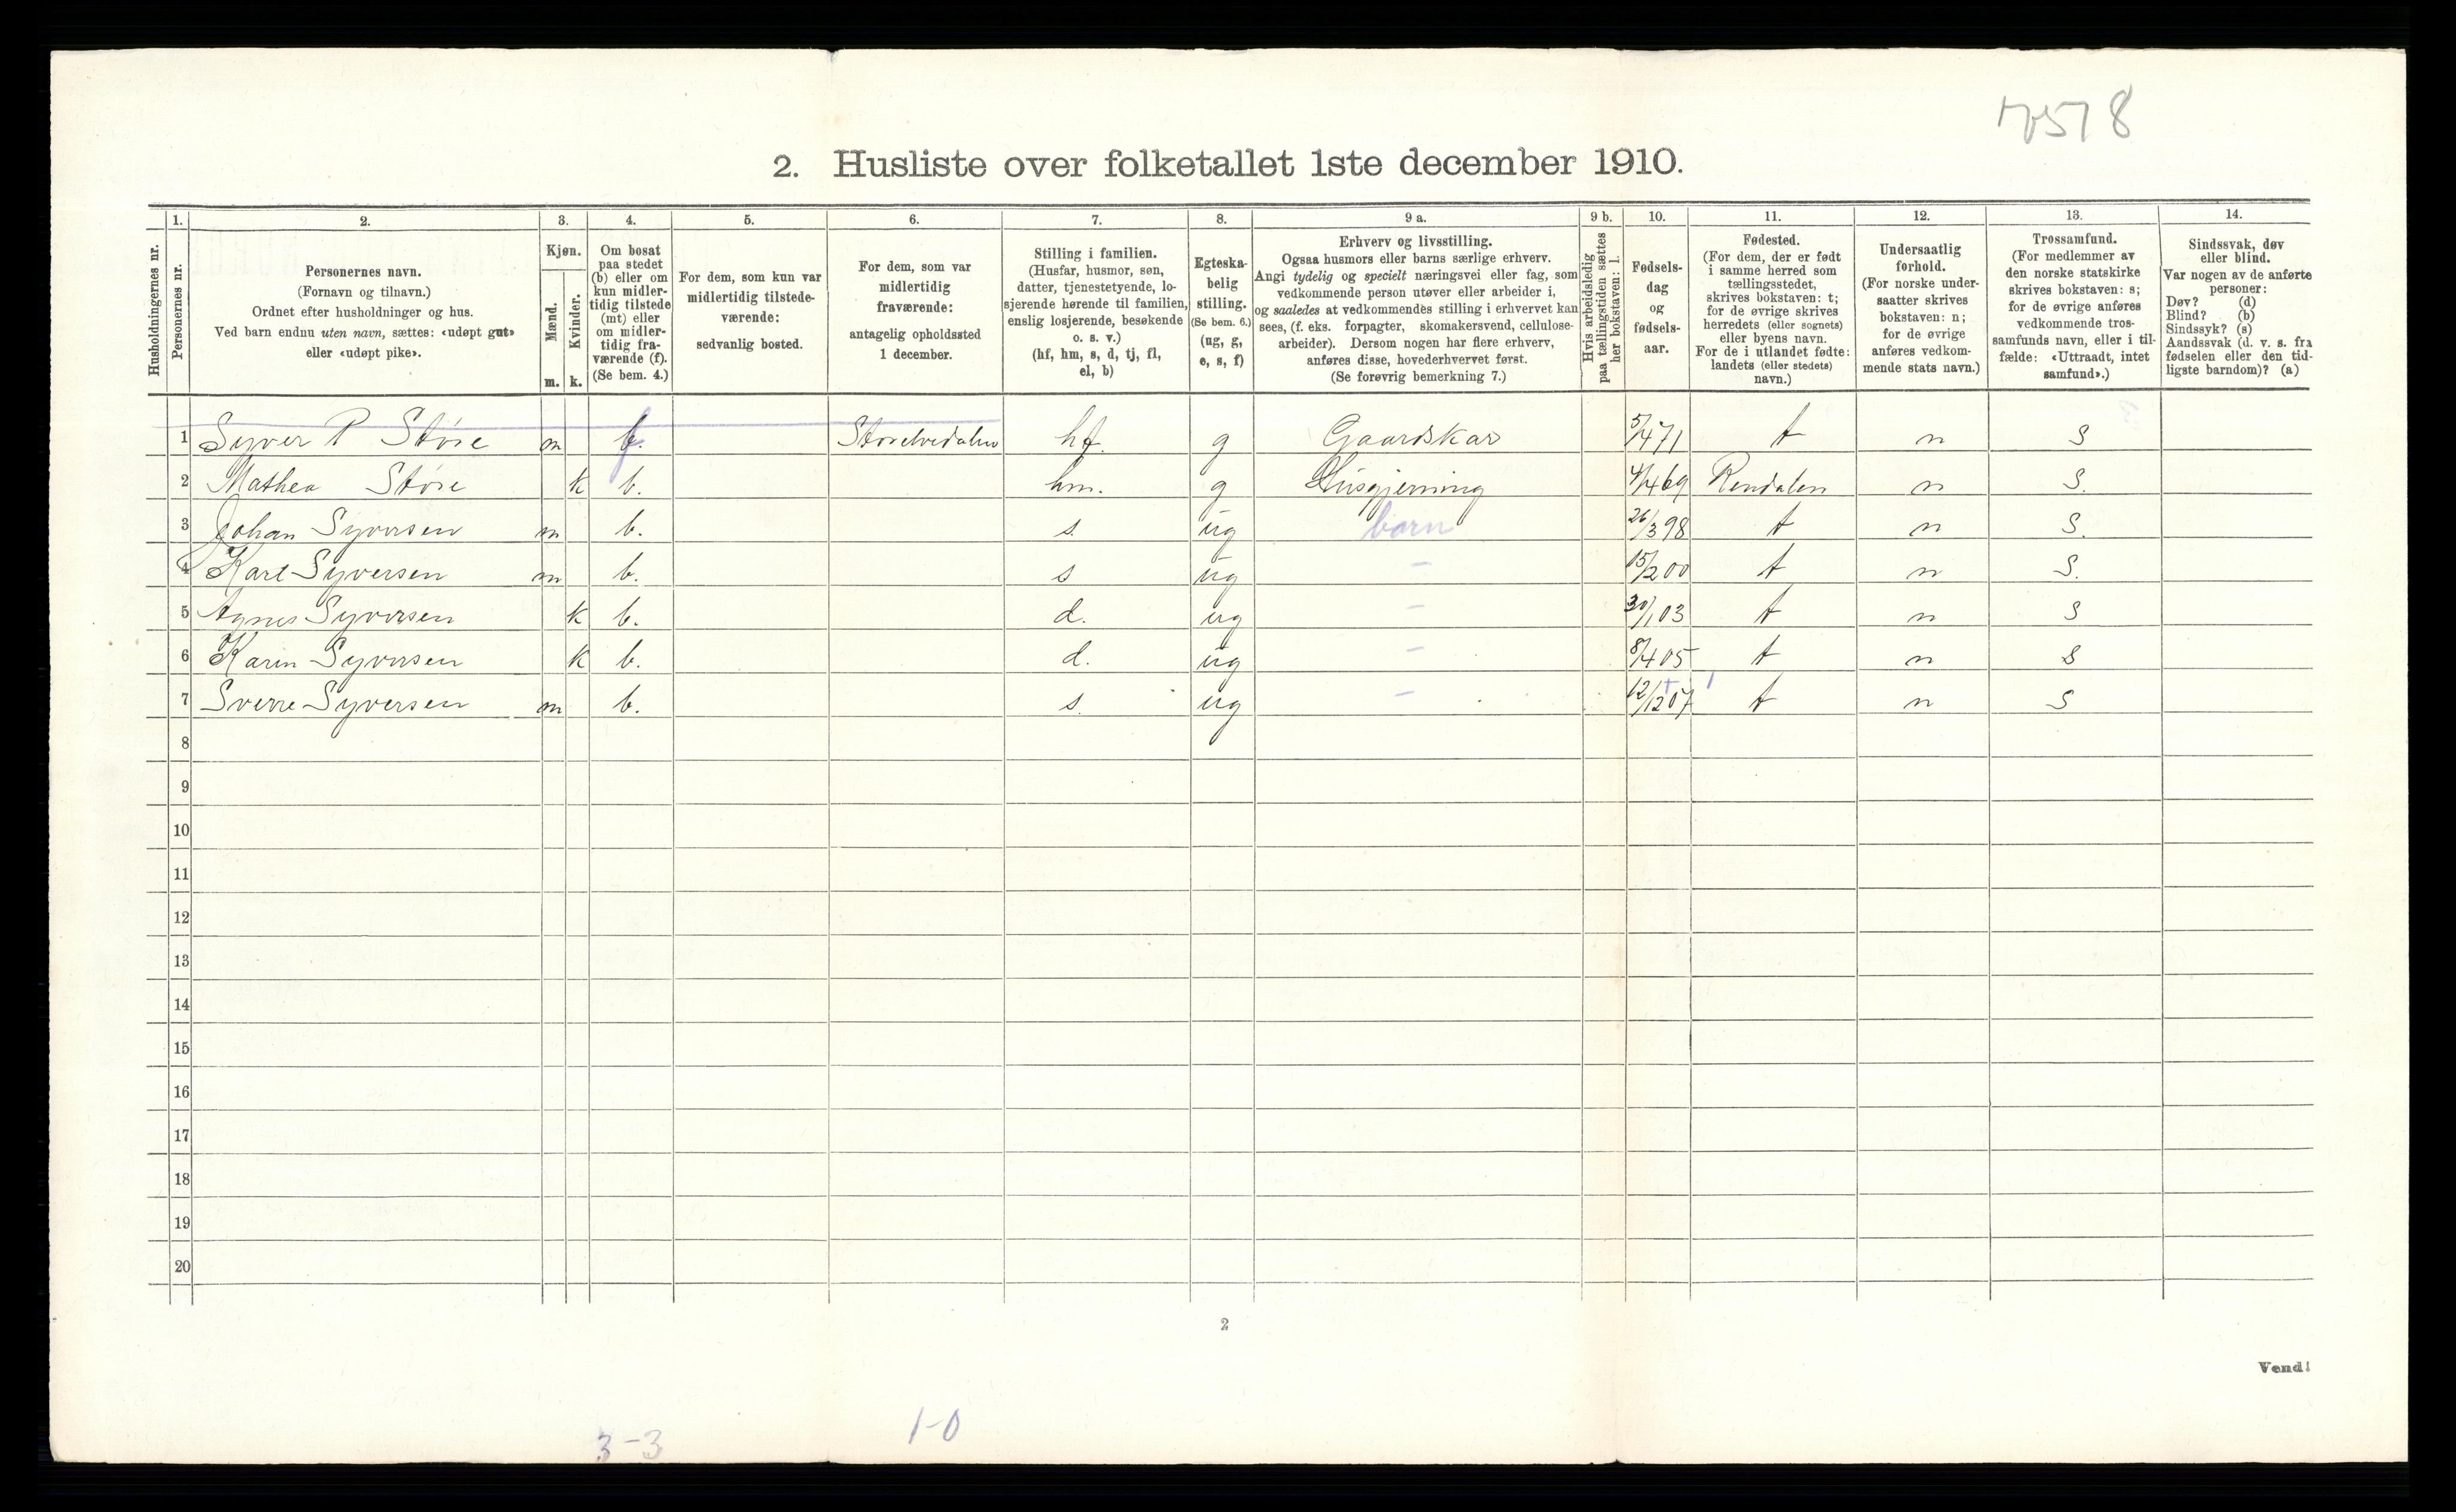 2. Husliste over folketallet 1ste december 1910.
Husholdningernes nr.
1.
Personernes nr.
2.
Personernes navn.
(Fornavn og tilnavn.)
Ordnet efter husholdninger og hus.
Ved barn endnu uten navn, sættes: «udøpt gut»
eller «udøpt pike».
3.
Kjøn.
Mænd.
Kvinder.
m. k.
4.
Om bosat
paa stedet
(b) eller om
kun midler-
tidig tilstede
(mt) eller
om midler-
tidig fra-
værende (f).
(Se bem. 4.)
5.
For dem, som kun var
midlertidig tilstede-
værende:
sedvanlig bosted.
6.
For dem, som var
midlertidig
fraværende:
antagelig opholdssted
1 december.
7.
Stilling i familien.
(Husfar, husmor, søn,
datter, tjenestetyende, lo-
sjerende hørende til familien,
enslig losjerende, besøkende
o. s. v.)
(hf, hm, s, d, tj, fl,
el, b)
8.
Egteska-
belig
stilling.
(Se bem. 6.)
(ug, g,
e, s, f)
9 a.
Erhverv og livsstilling.
Ogsaa husmors eller barns særlige erhverv.
Angi tydelig og specielt næringsvei eller fag, som
vedkommende person utøver eller arbeider i,
og saaledes at vedkommendes stilling i erhvervet kan
sees, (f. eks. forpagter, skomakersvend, cellulose-
arbeider). Dersom nogen har flere erhverv,
anføres disse, hovederhvervet først.
(Se forøvrig bemerkning 7.)
9 b.
Hvis arbeidsledig
paa tællingstiden sættes
her bokstaven: l.
10.
Fødsels-
dag
og
fødsels-
aar.
11.
Fødested.
(For dem, der er født
i samme herred som
tællingsstedet,
skrives bokstaven: t;
for de øvrige skrives
herredets (eller sognets)
eller byens navn.
For de i utlandet fødte:
landets (eller stedets)
navn.)
12.
Undersaatlig
forhold.
(For norske under-
saatter skrives
bokstaven: n;
for de øvrige
anføres vedkom-
mende stats navn.)
13.
Trossamfund.
(For medlemmer av
den norske statskirke
skrives bokstaven: s;
for de øvrige anføres
vedkommende tros-
samfunds navn, eller i til-
fælde: «Uttraadt, intet
samfund».)
14.
Sindssvak, døv
eller blind.
Var nogen av de anførte
personer:
Døv? (d)
Blind? (b)
Sindssyk? (s)
Aandssvak (d. v. s. fra
fødselen eller den tid-
ligste barndom)? (a)
1 Syver P Støre m f. Storelvedalen hf. g Gaardskar 5/4 71 t n S
2 Mathea Støre k b. hm. g Husgjerning 4/4 69 Rendalen n S.
3 Johan Syversen m b. s. ug barn 26/3 98 t n S.
4 Karl Syversen m b. s ug - 15/2 00 t n S.
5 Agnes Syversen k b. d. ug - 30/1 03 t n S
6 Karin Syversen k b. d. ug - 8/4 05 t n S
7 Sverre Syversen m b. s. ug - 12/12 07 t n S
8
9
10
11
12
13
14
15
16
17
18
19
20
2
Vend!
3-3 1-0